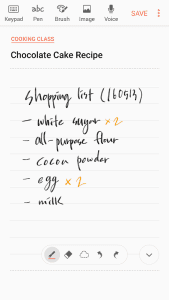 Keypad Pen Brush Image Voice SAVE
COOKING CLASS
Chocolate Cake Recipe
Shopping list (160513)
- white sugar x2
- all-purpose flour
- cocoa powder
- egg x2
- milk